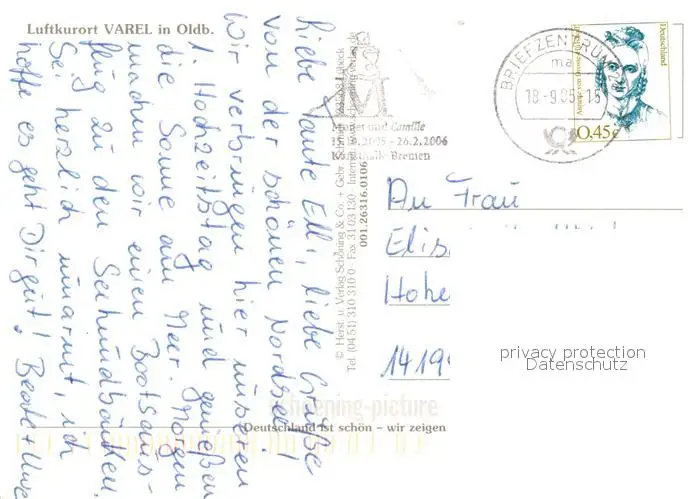 Luftkurort VAREL in Oldb.
Liebe Tante Elli, liebe Grüße
von der schönen Nordsee!
Wir verbringen hier unseren
1. Hochzeitstag und genießen
die Sonne am Meer. Morgen
machen wir einen Bootsaus-
flug zu den Seehundbänken.
Sei herzlich umarmt, ich
hoffe es geht Dir gut! Beate Uwe
© Herst. u. Verlag Schöning & Co. + Gebr. Schmidt
Tel. (04 51) 310 310 0 · Fax 31 03 130 · Internet:
001.26316.0106
Monet und Camille
- 26.2.2006
Kunsthalle Bremen
BRIEFZENTRUM
ma
18.-9.05-18
Deutschland
0,45€
An Frau
Elis
Hohe
1419
privacy protection
Datenschutz
shopping-picture
Deutschland ist schön – wir zeigen